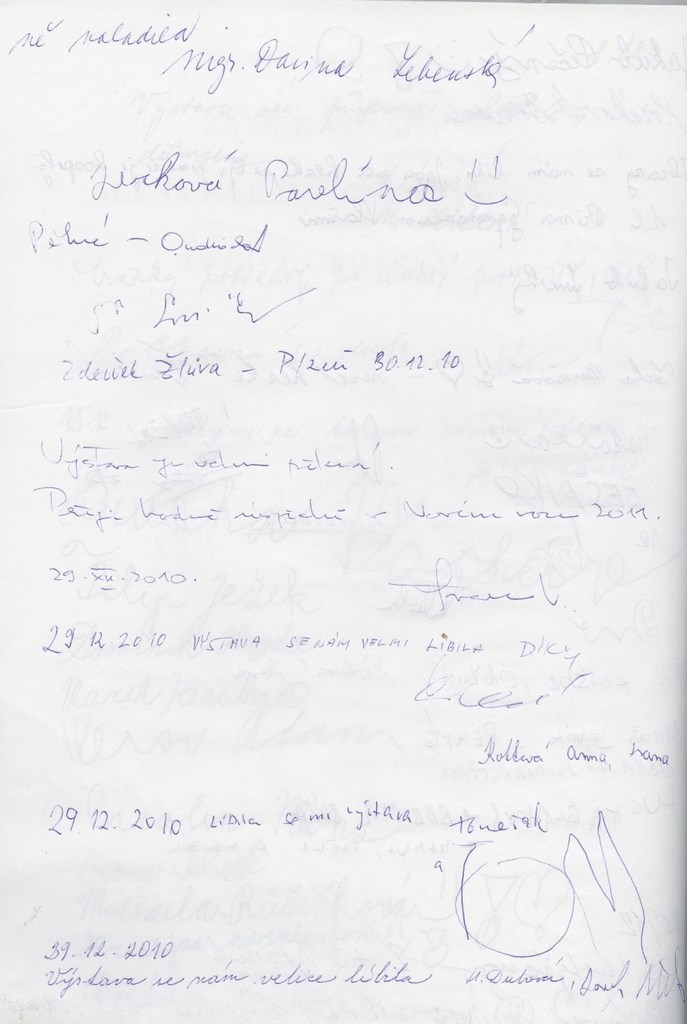 mě naladila
Mgr. Davina Lebenská
Jirková Pavlína
Pěkné – Ondráš
Zdeněk Žlůva – Plzeň 30.12.10
Výstava je velmi pěkná.
Přeji hodně úspěchů v Novém roce 2011.
29.XII.2010.
29 12 2010 VÝSTAVA SE NÁM VELMI LÍBILA DÍKY
Anna Ivana
29.12.2010 LÍBILA se mi výstava Tomeček
a TOM
39.12.2010
Výstava se nám velice líbila M. Dubová,